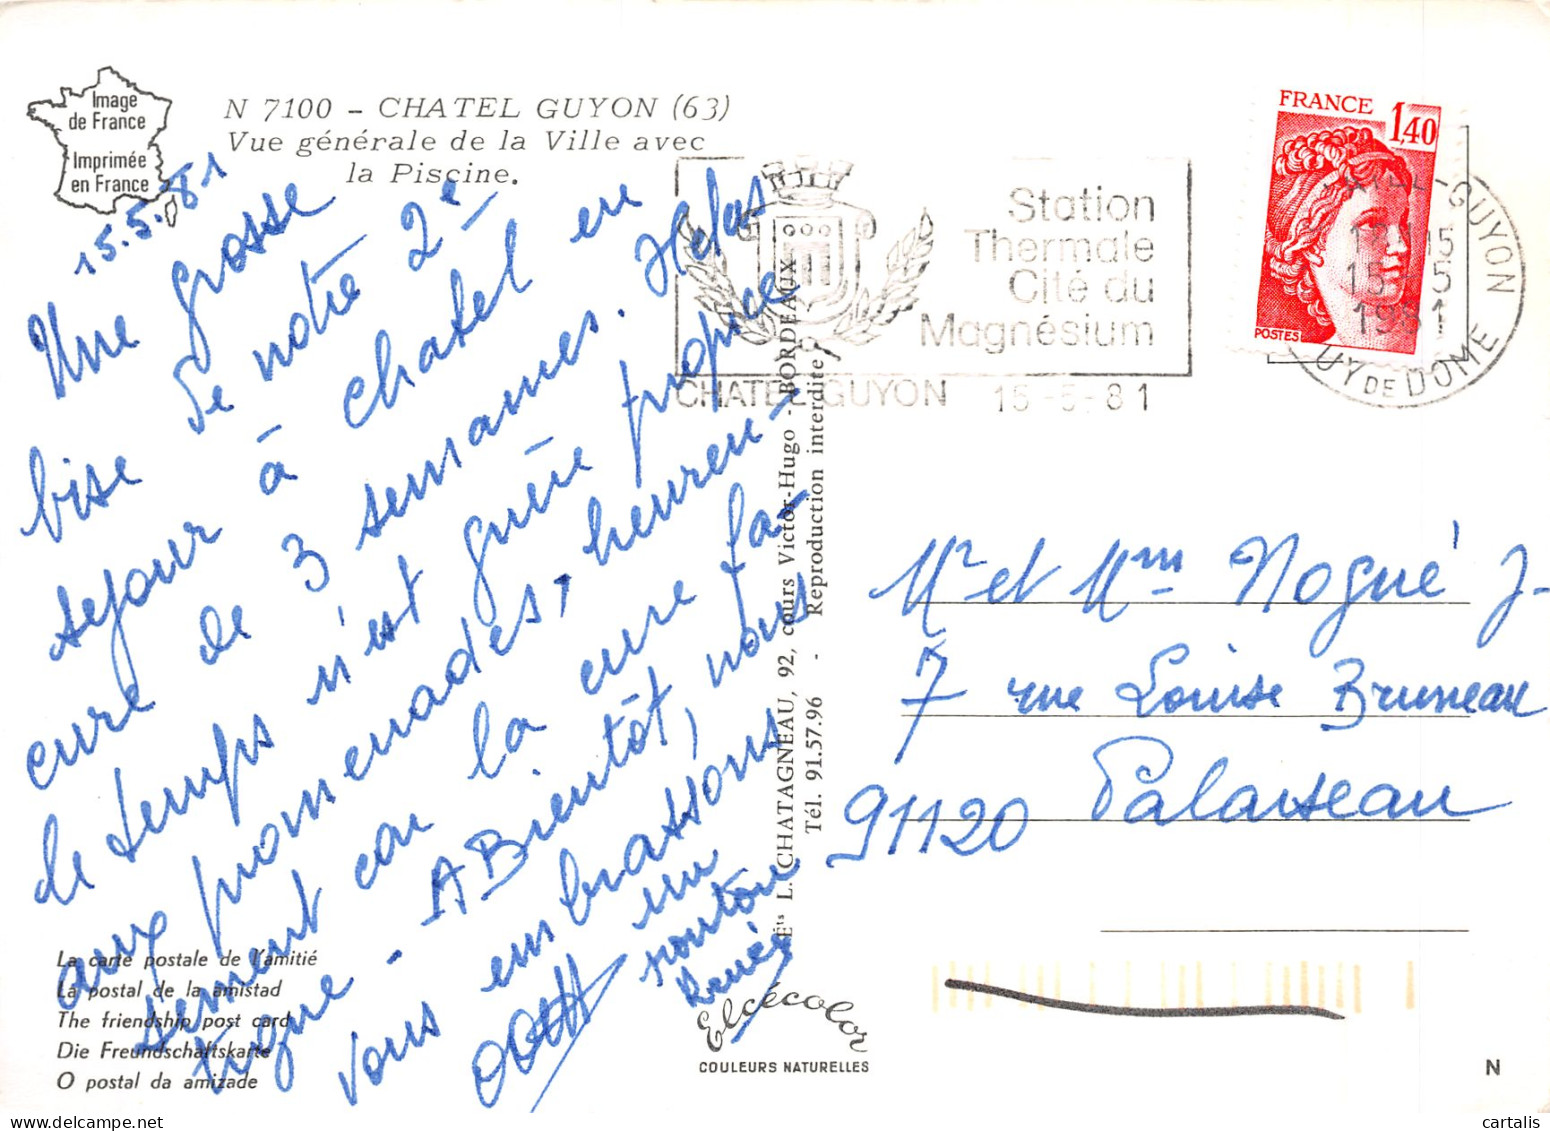 Image
de France
Imprimée
en France
N 7100 - CHATEL GUYON (63)
Vue générale de la Ville avec
la Piscine.
15.5.81
Une grosse
bise de notre 2e
sejour à chatel en
cure de 3 semaines. Helas
le temps n'est guère propice
aux promenades, heureu-
sement car la cure fa-
tigue - A Bientôt, nous
vous embrassons
un
mouton
Renée
La carte postale de l'amitié
La postal de la amistad
The friendship post card
Die Freundschaftskarte
O postal da amizade
Ets L. CHATAGNEAU, 92, cours Victor-Hugo - BORDEAUX
Tél. 91.57.96 - Reproduction interdite
Elcécolor
COULEURS NATURELLES
Station
Thermale
Cité du
Magnésium
CHATEL GUYON 15-5-81
FRANCE 1,40
POSTES
GUYON
15-5
1981
PUY DE DOME
Mr et Mme Nogué J-
7 rue Louise Bruneau
91120 Palaiseau
N
cartalis